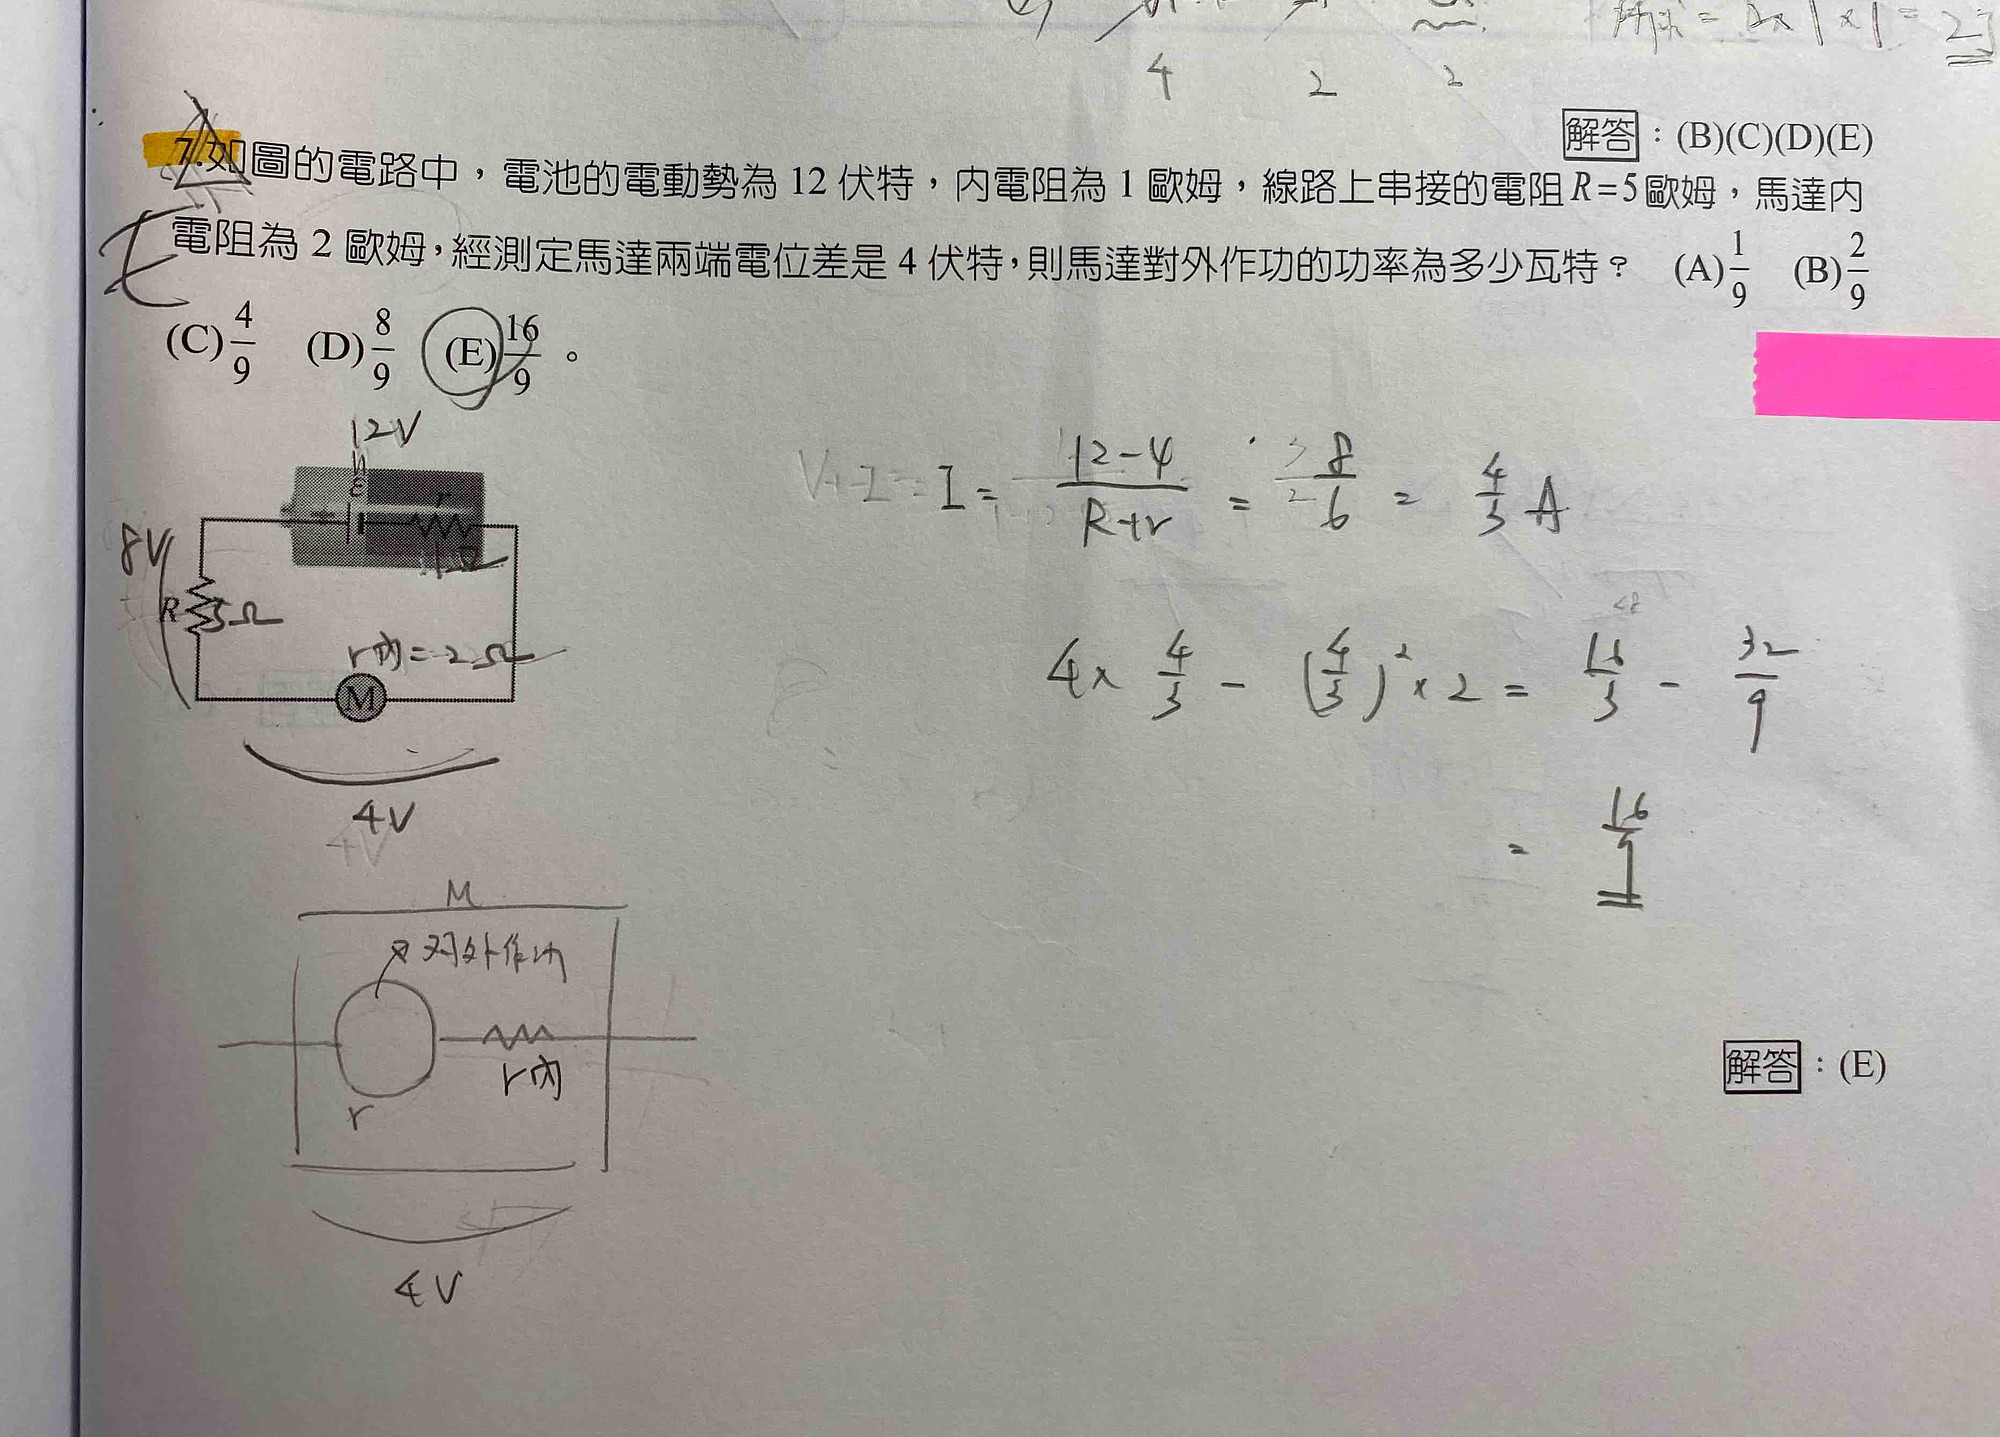 4 2 2
= 2×1×1 = 2J
解答：(B)(C)(D)(E)
7.如圖的電路中，電池的電動勢為 12 伏特，內電阻為 1 歐姆，線路上串接的電阻 R=5 歐姆，馬達內
電阻為 2 歐姆，經測定馬達兩端電位差是 4 伏特，則馬達對外作功的功率為多少瓦特？ (A) 1/9 (B) 2/9
(C) 4/9 (D) 8/9 (E) 16/9 。
E
12V
ε r
1Ω
8V
R 5Ω
r內=2Ω
M
4V
I = (12-4)/(R+r) = 8/6 = 4/3 A
4× 4/3 - (4/3)² × 2 = 16/3 - 32/9
= 16/9
M
对外作功
r內
r
4V
解答：(E)